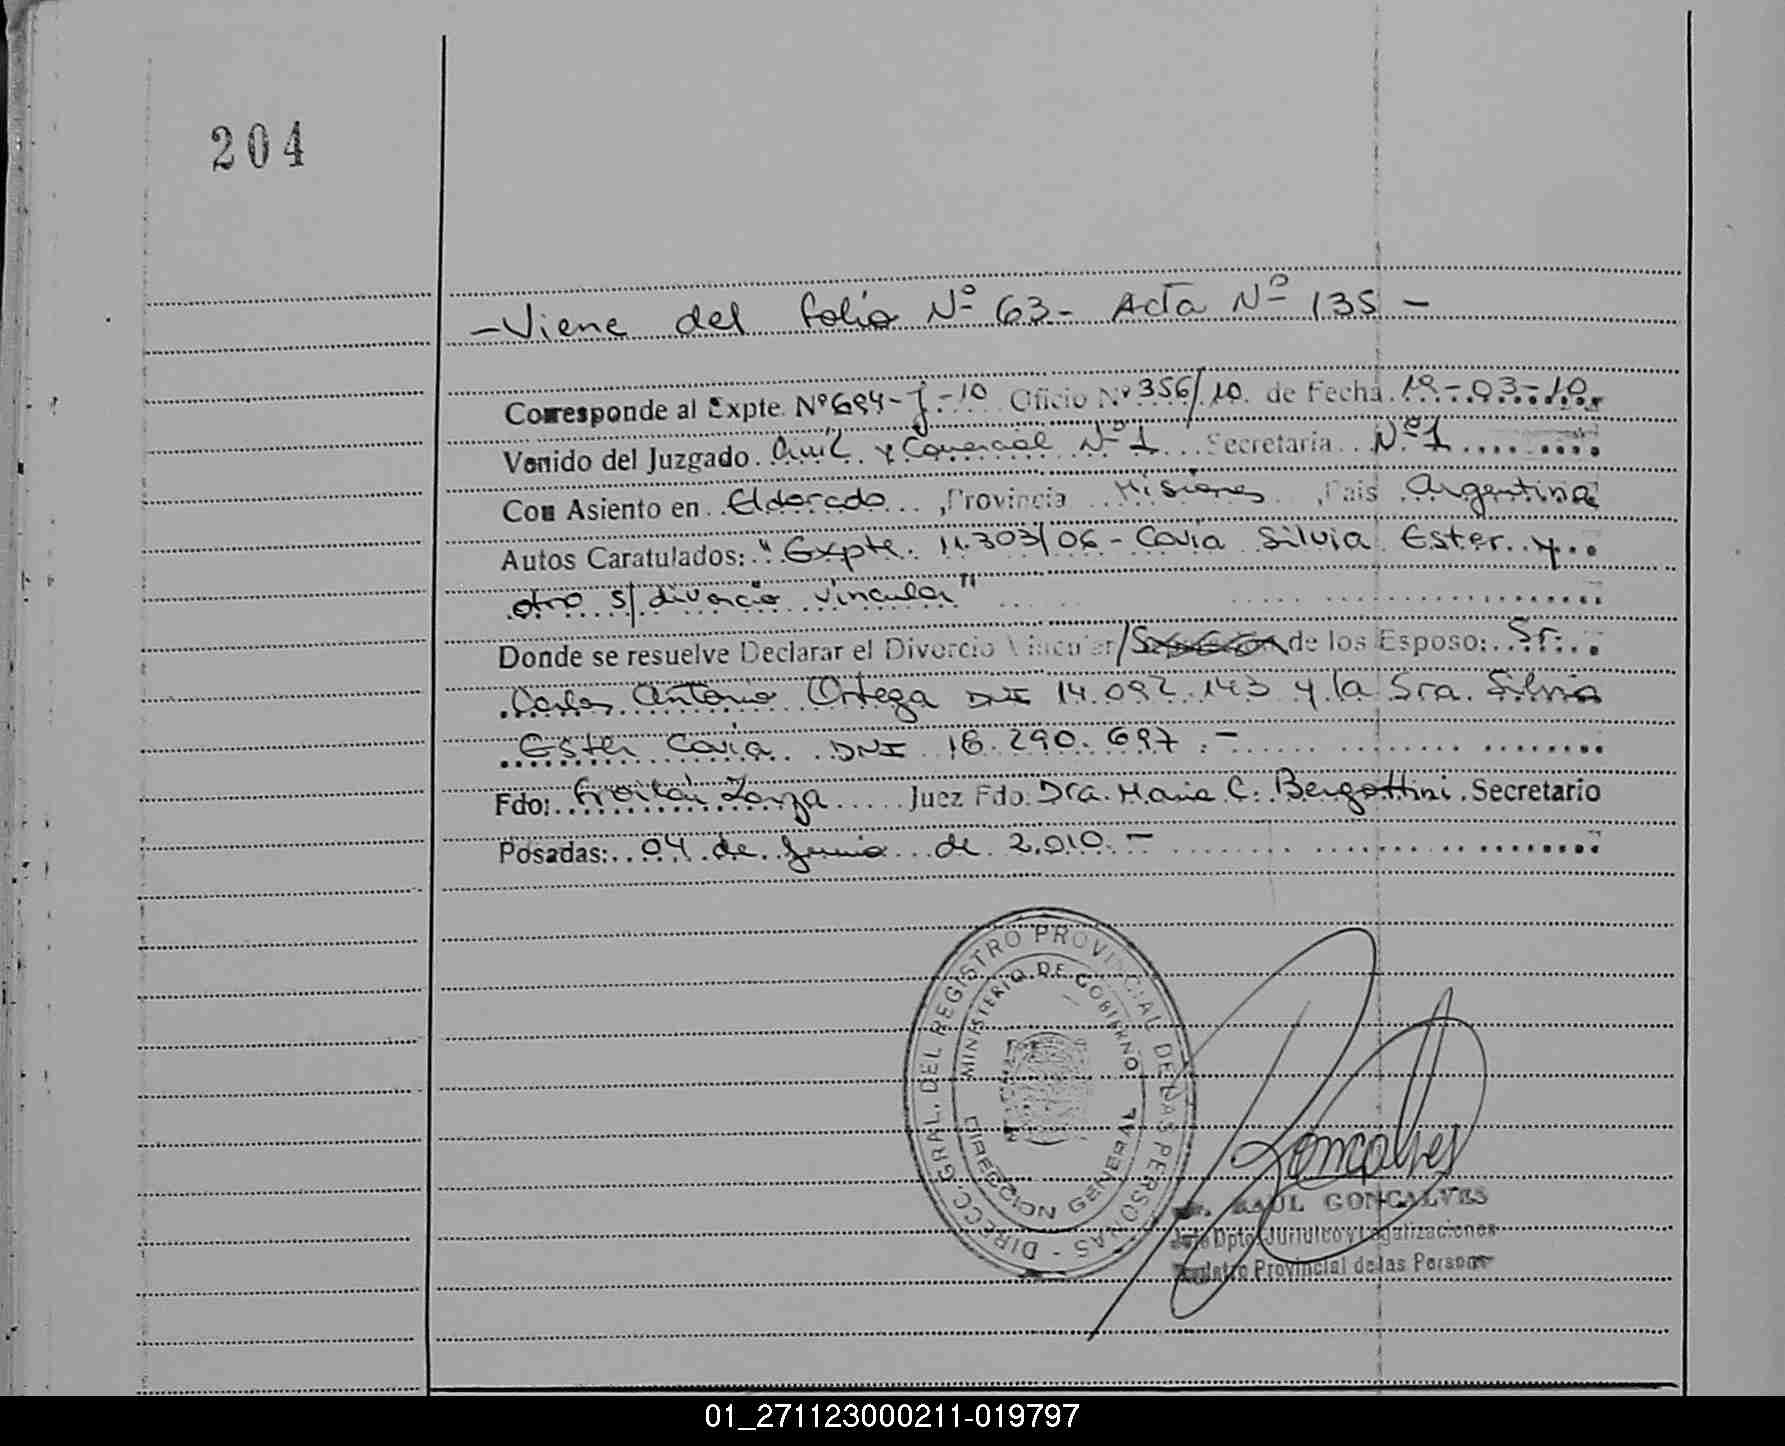 204
- Viene del folio Nº 63 - Acta Nº 135 -
Corresponde al Expte. Nº 694-J-10 Oficio Nº 356/10. de Fecha 19-03-10.
Venido del Juzgado Civil y Comercial Nº 1 Secretaria Nº 1
Con Asiento en Eldorado, Provincia Misiones, Pais Argentina
Autos Caratulados: "Expte. 11.303/06 - Cavia Silvia Ester y
otro s/ divorcio vincular"
Donde se resuelve Declarar el Divorcio Vincular/ de los Esposo: Sr.
Carlos Antonio Ortega DNI 14.092.143 y la Sra. Silvia
Ester Cavia DNI 18.290.697.-
Fdo: Froilán Zarza Juez Fdo. Dra. Maria C. Bergottini. Secretario
Posadas: 04 de Junio de 2.010.-
DIRECC. GRAL. DEL REGISTRO PROVINCIAL DE LAS PERSONAS -
MINISTERIO DE GOBIERNO
DIRECCION GENERAL
Goncalves
RAUL GONCALVES
Jefe Dpto. Juridico y Legalizaciones
Registro Provincial de las Personas
01_271123000211-019797